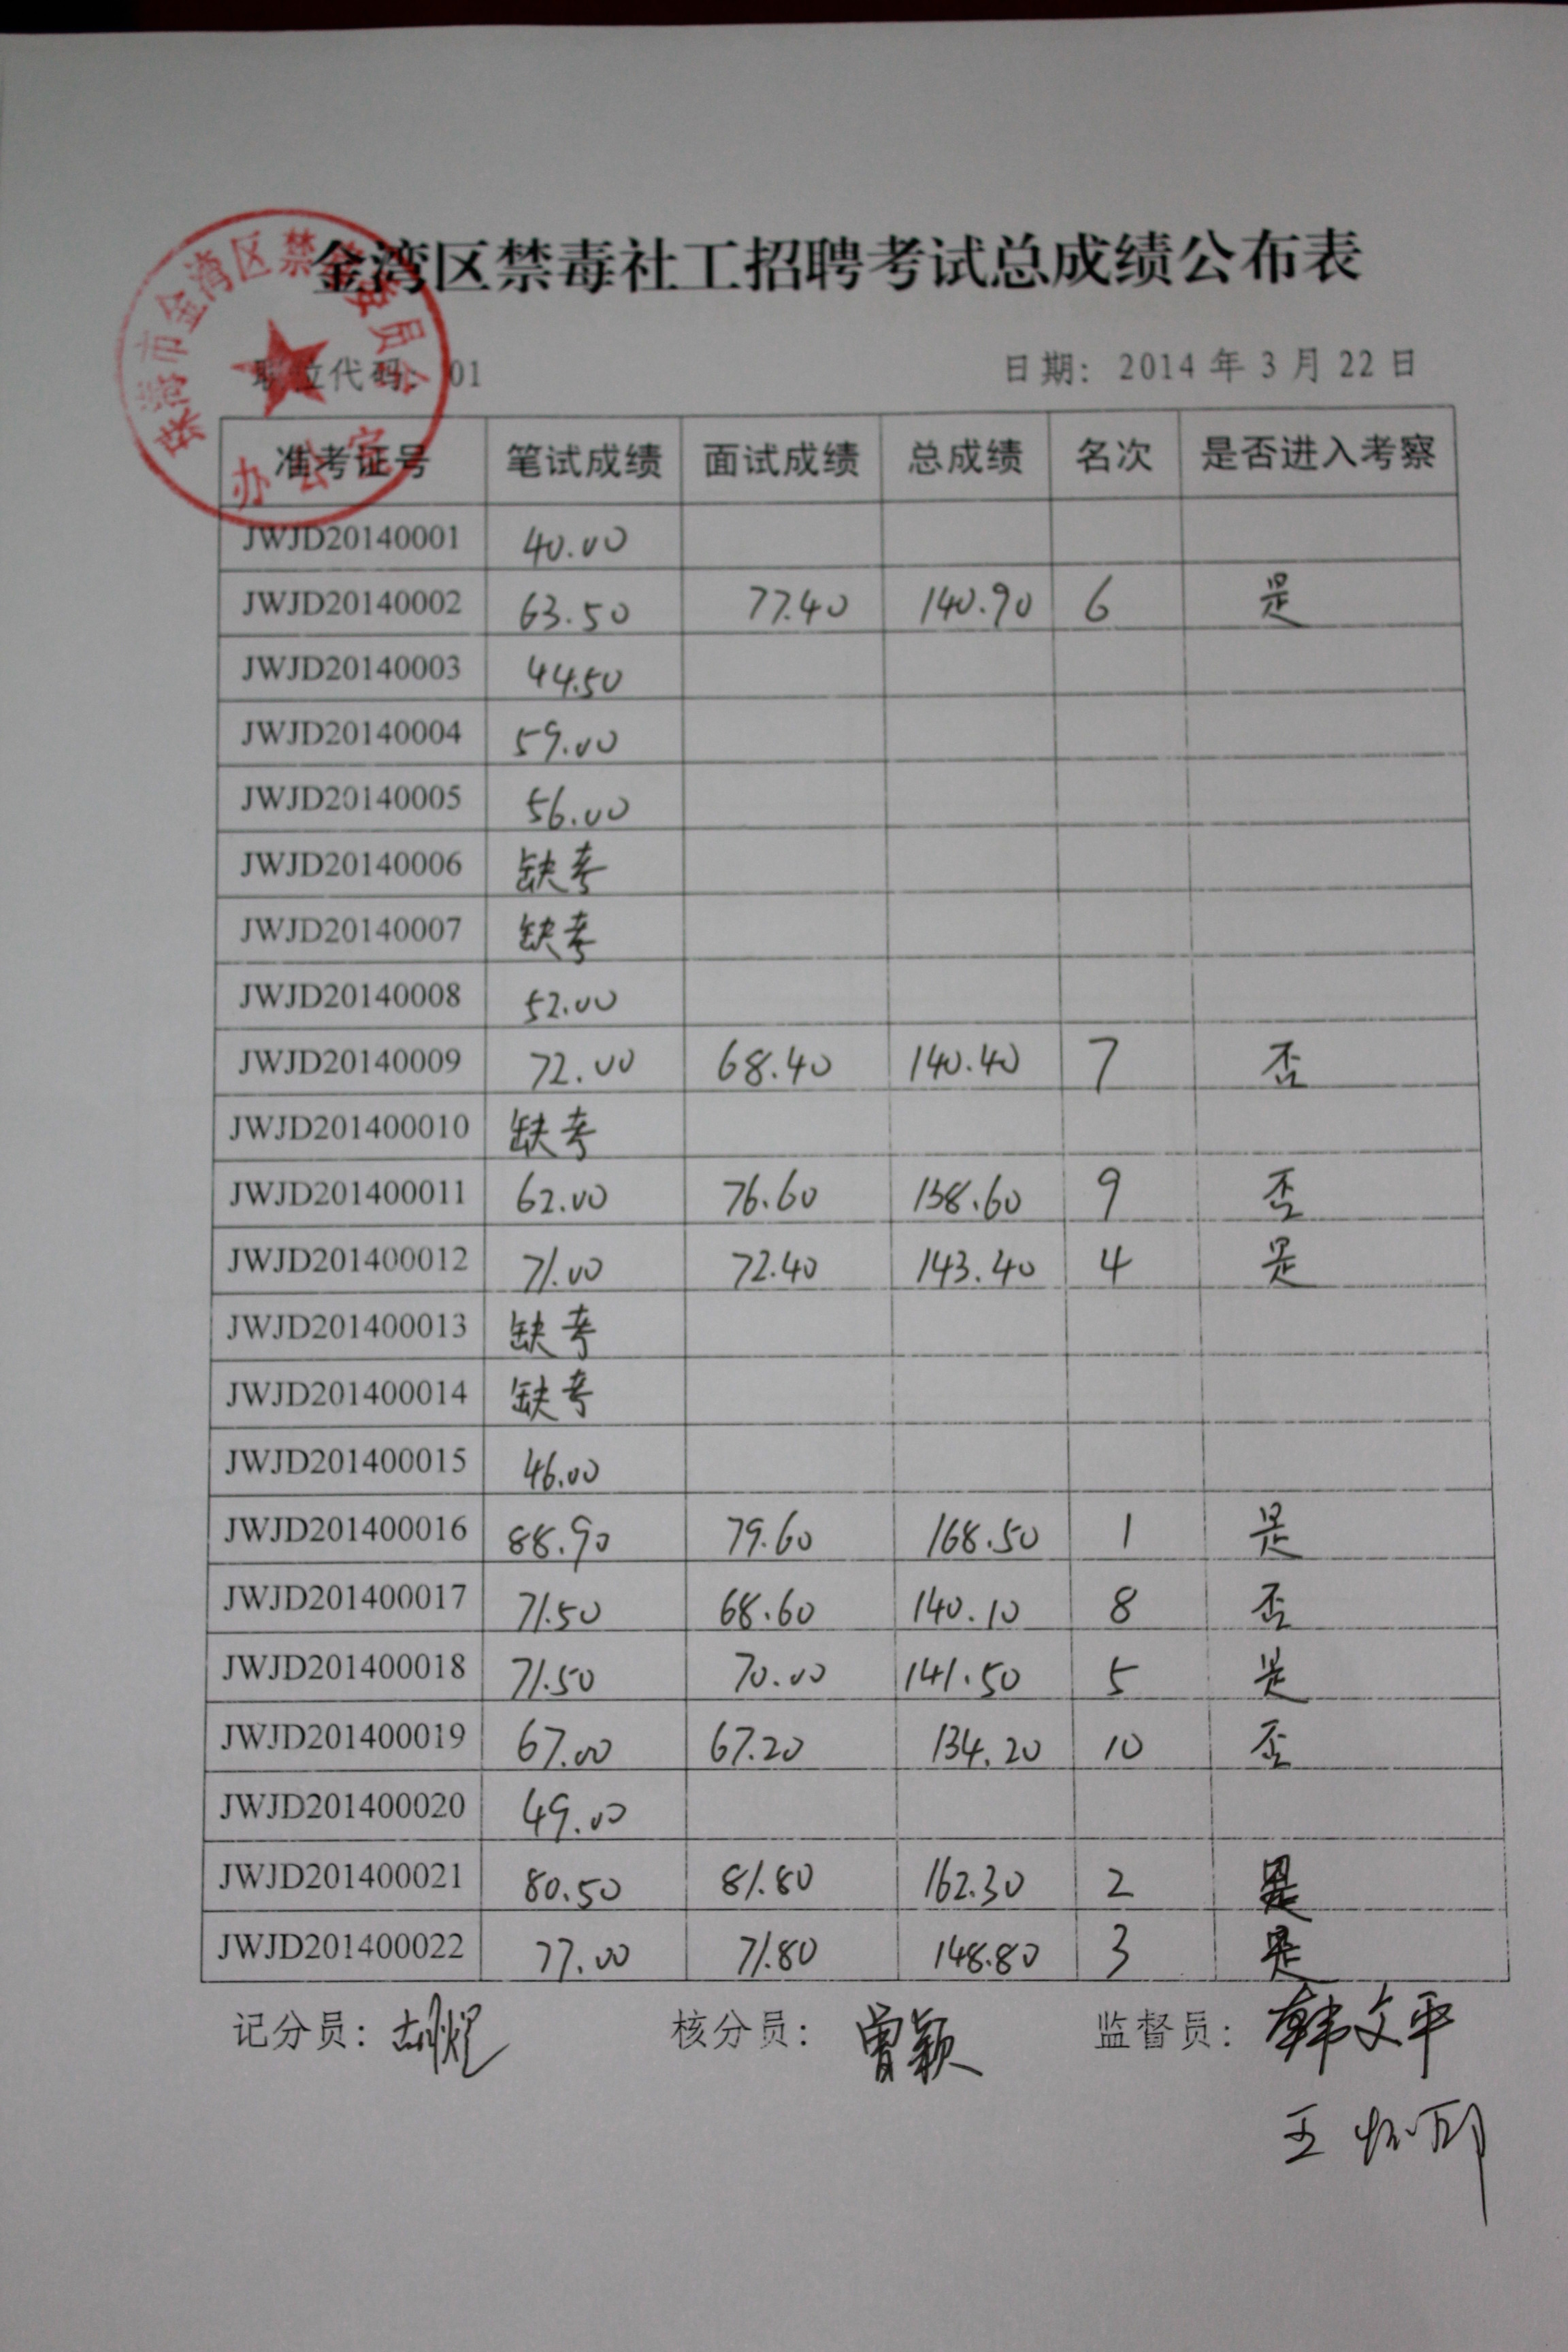 金湾区禁毒社工招聘考试总成绩公布表
珠海市金湾区禁毒委员会
办公室
职位代码：01 日期：2014年3月22日
准考证号 笔试成绩 面试成绩 总成绩 名次 是否进入考察
JWJD20140001 40.00
JWJD20140002 63.50 77.40 140.90 6 是
JWJD20140003 44.50
JWJD20140004 59.00
JWJD20140005 56.00
JWJD20140006 缺考
JWJD20140007 缺考
JWJD20140008 52.00
JWJD20140009 72.00 68.40 140.40 7 否
JWJD201400010 缺考
JWJD201400011 62.00 76.60 138.60 9 否
JWJD201400012 71.00 72.40 143.40 4 是
JWJD201400013 缺考
JWJD201400014 缺考
JWJD201400015 46.00
JWJD201400016 88.90 79.60 168.50 1 是
JWJD201400017 71.50 68.60 140.10 8 否
JWJD201400018 71.50 70.00 141.50 5 是
JWJD201400019 67.00 67.20 134.20 10 否
JWJD201400020 49.00
JWJD201400021 80.50 81.80 162.30 2 是
JWJD201400022 77.00 71.80 148.80 3 是
记分员： 核分员：曾颖 监督员：韩文平